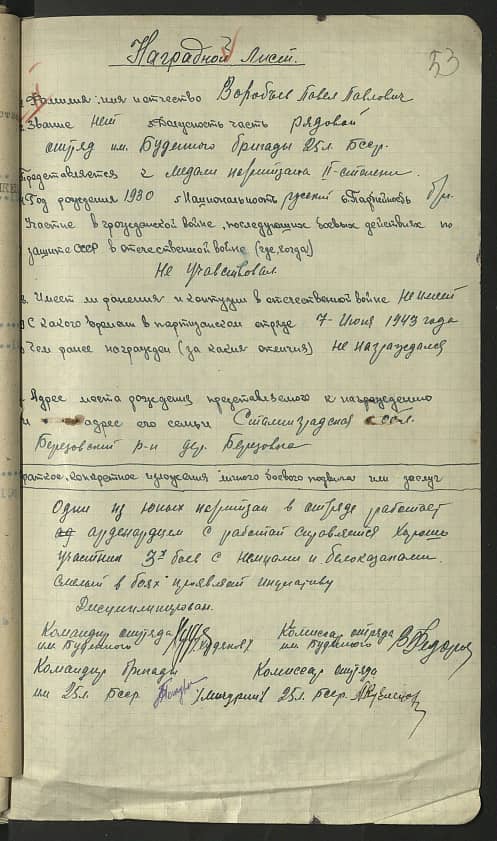 53
Наградной лист.
1 Фамилия, имя и отчество Воробьев Павел Павлович
2 Звание нет 3 Должность часть рядовой
отряд им. Буденного бригады 25л. Бсср.
Представляется к медали партизана II-степени.
4 Год рождения 1930 5 Национальность русский 6 Партийность б/п.
Участие в гражданской войне, последующих боевых действиях по
защите СССР в отечественной войне (где, когда)
Не участвовал
8. Имеет ли ранения и контузии в отечественной войне Не имеет
9 С какого времени в партизанском отряде 7-Июня 1943 года
Чем ранее награжден (за какия отличия) не награждался
Адрес места рождения представляемого к награждению
и адрес его семьи Сталинградская обл.
Березовский р-н дер. Березовка
Краткое, конкретное изложения личного боевого подвига или заслуг
Один из юных партизан в отряде работает
арденардцем с работай справляется хорошо
участник 3х боев с немцами и белоказаками.
Смелый в боях проявляет инициативу
Дисциплинирован.
Командир отряда Комиссар отряда
им Буденного им Буденного
Командир бригады Комиссар отряда
им 25л. Бсср. 25л. Бсср.